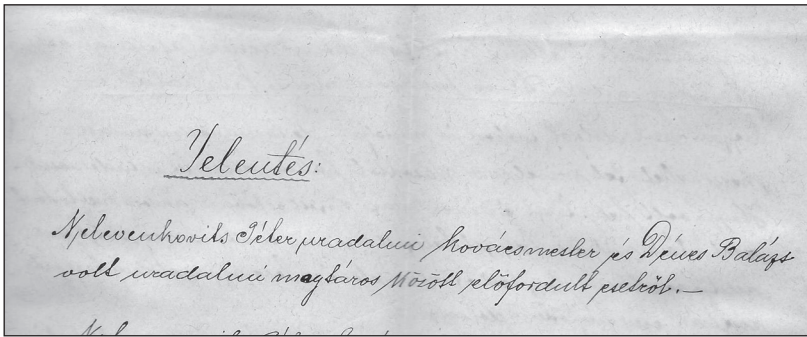 Jelentés:
Nelevenkovits Péter uradalmi kovácsmester és Dénes Balázs
volt uradalmi magtáros között előfordult esetről.—